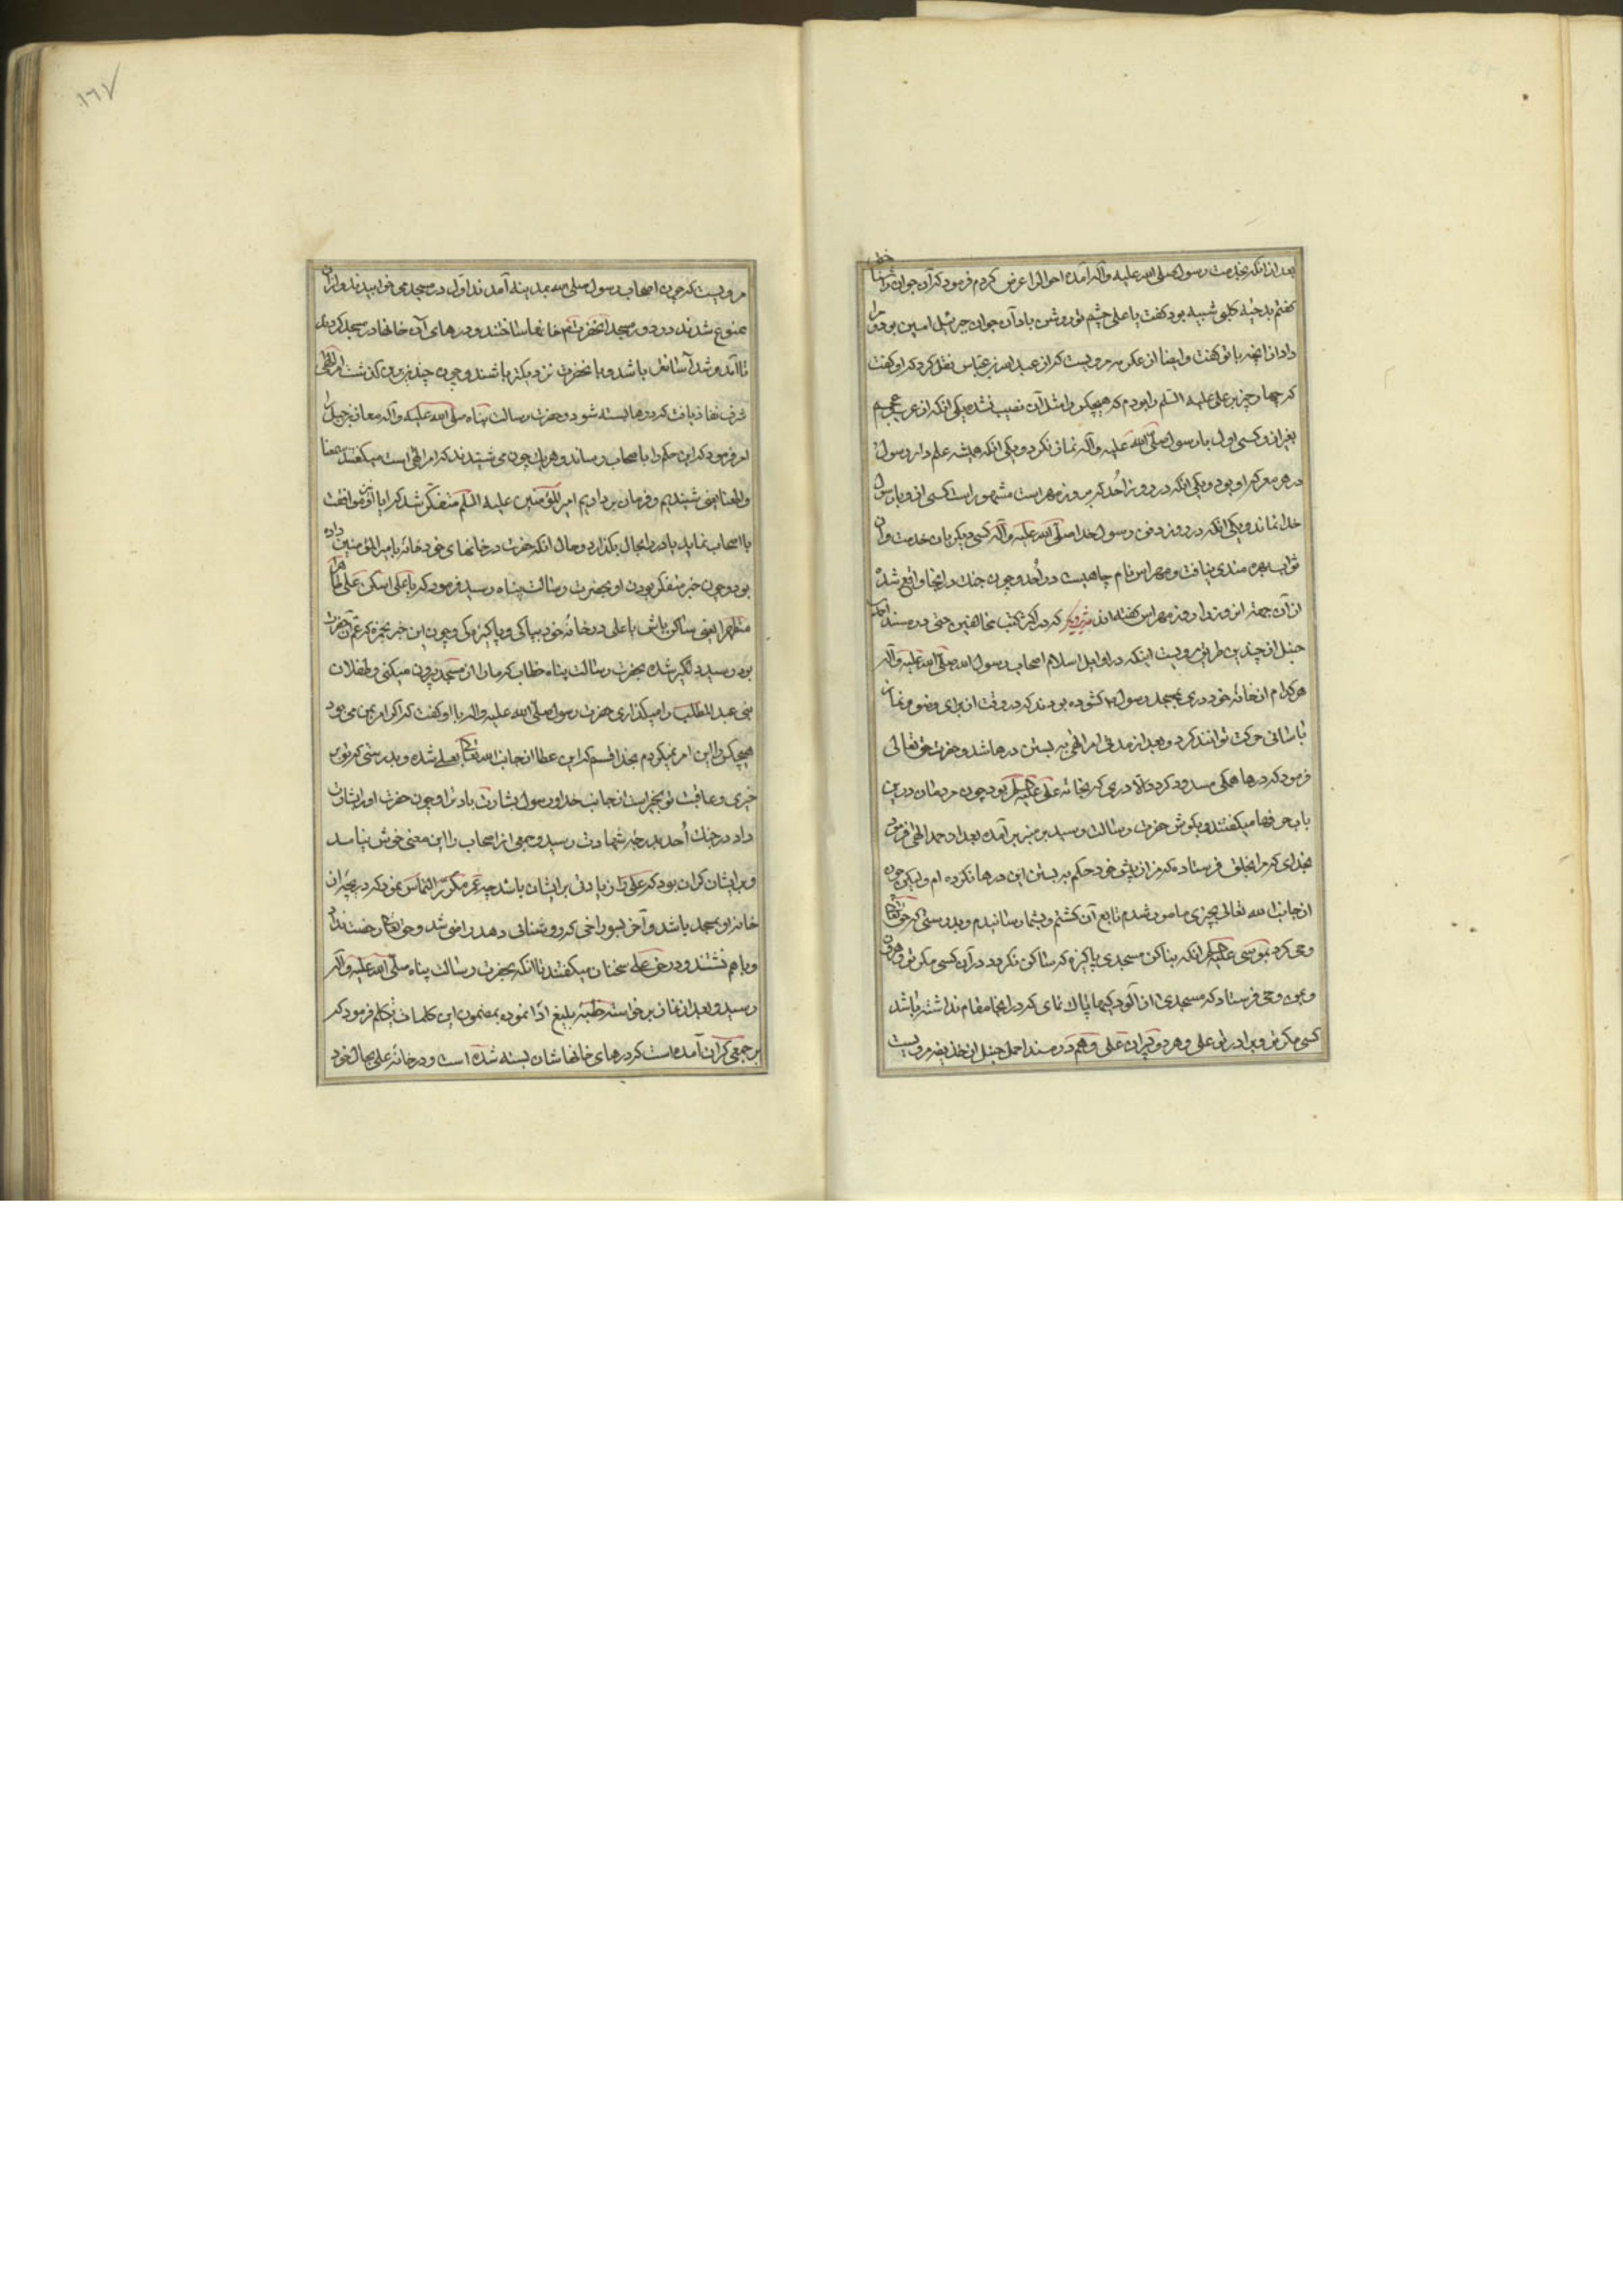 بعد از انکه بخدمت رسول صلی الله علیه و آله آمده احوال را عرض کردم فرمود که آن جوان را شناختی
گفتم بدحیه کلبی شبیه بود گفت یا علی چشم تو روشن باد آن جوان جبرئیل امین بود و مرا
داد از انچه با تو گفت و ایضا از عکرمه مرویست که از عبد الله بن عباس نقل کرد که او گفت
که چهار چیز بر علی علیه السلم را بود که هیچکس را مثل آن نصیب نشده یکی انکه از عرب و عجم
بغیر از و کسی اول با رسول صلی الله علیه و آله نماز نکرد و یکی انکه همیشه علم دار رسول
در هر معرکه او بود و یکی انکه در روز اُحد که بروز مهراس مشهور است کسی از و با رسول
خدا نماند و یکی انکه در روز دفن رسول خدا صلی الله علیه و آله کسی دیگر بان خدمت و آن
ثواب بهره مندی نیافت و مهراس نام چاهیست در اُحد و چون جنک در انجا واقع شده
از آن جهة ان روز را روز مهراس گفته اند دیگر که در اکثر کتب مخالفین حتی در مسند احمد
حنبل از چندین طریق مرویست اینکه در اوایل اسلام اصحاب رسول الله صلی الله علیه و آله
هر کدام از خانه خود دری بمسجد رسول کشوده بودند که در وقت از برای وضو و نماز
باسانی حرکت توانند کرد و بعد از مدتی امر الهی به بستن درها شد و حضرت حق تعالی
فرمود که درها همکی مسدود کردد الا دری که بخانه علی علیه السلم بود چون مردمان درین
باب حرفها میکفتند و بکوش حضرت رسالت رسید بر منبر برامده بعد از حمد الهی فرمود
بخدای که مرا بخلق فرستاده که من از پیش خود حکم به بستن این درها نکرده ام ولیکن چون
از جانب الله تعالی بچیزی مامور شدم تابع آن کشتم و بشما رسانیدم و بدرستی که حق تعالی
وحی کرد بموسی علیه السلم انکه بنا کن مسجدی پاکیزه که ساکن نکردد در آن کسی مکر تو و هرون
و بمن وحی فرستاد که مسجدی از آلودکیها پاک نمای که در انجا مقام نداشته باشد
کسی مکر تو و برادر تو علی و هر دو پسران علی و هم در مسند احمد حنبل از حذیفه مرویست
١٦٧
مرویست که چون اصحاب رسول صلی الله بمدینه آمدند اول در مسجد می خوابیدند و از آن
ممنوع شدند در دور مسجد انحضرت هم خانها ساختند و درهای آن خانها در مسجد کردند
تا آمد و شد آسانتر باشد و بانحضرت نزدیکتر باشند و چون چندی برین کذشت امر الهی
شرف نفاذ یافت که درها بسته شود و حضرت رسالت پناه صلی الله علیه و آله معاذ بن جبل را
امر فرمود که این حکم را باصحاب رساند و هر یک چون می شنیدند که امر الهی است میکفتند سمعنا
و اطعنا یعنی شنیدیم و فرمان برداریم امیر المؤمنین علیه السلم متفکر شد که ایا او نیز موافقت
با اصحاب نماید یا در را بحال بکذارد و حال انکه حضرت در خانهای خود خانه بامیر المؤمنین داده
بود و چون خبر متفکر بودن او بحضرت رسالت پناه رسید فرمود که یا علی اسکن علی طاهرا
متطهرا یعنی ساکن باش یا علی در خانه خود بپاکی و پاکیزکی و چون این خبر بحمزه که عم آن حضرت
بود رسید دلکیر شده بحضرت رسالت پناه خطاب کرد که ما را از مسجد بیرون میکنی و طفلان
بنی عبد المطلب را میکذاری حضرت رسول صلی الله علیه و اله با او کفت که اکر امر بمن می بود
هیچکس را این امر نمیکردم بخدا قسم که این عطا از جانب الله تعالی بعلی شده و بدرستی که تو بر
خیری و عاقبت تو بخیر است از جانب خدا و رسول بشارت باد ترا و چون حضرت او را بشارت
داد در جنک اُحد بدرجه شهادت رسید و جمعی از اصحاب را این معنی خوش نیامد
و بر ایشان کران بود که علی را زیادتی بر ایشان باشد چه عمر مکرر التماس نمود که دریچه از
خانه او بمسجد باشد و آخر بسوراخی که روشنائی دهد راضی شد و حق تعالی رخصت نداد
و با هم نشستند و در حق علی سخنان میکفتند تا انکه بحضرت رسالت پناه صلی الله علیه و آله
رسید و بعد از نماز برخواسته خطبه بلیغ ادا نموده بمضمون این کلمات تکلم فرمود که
بر جمعی کران آمده است که درهای خانهاشان بسته شده است و در خانه علی بحال خود